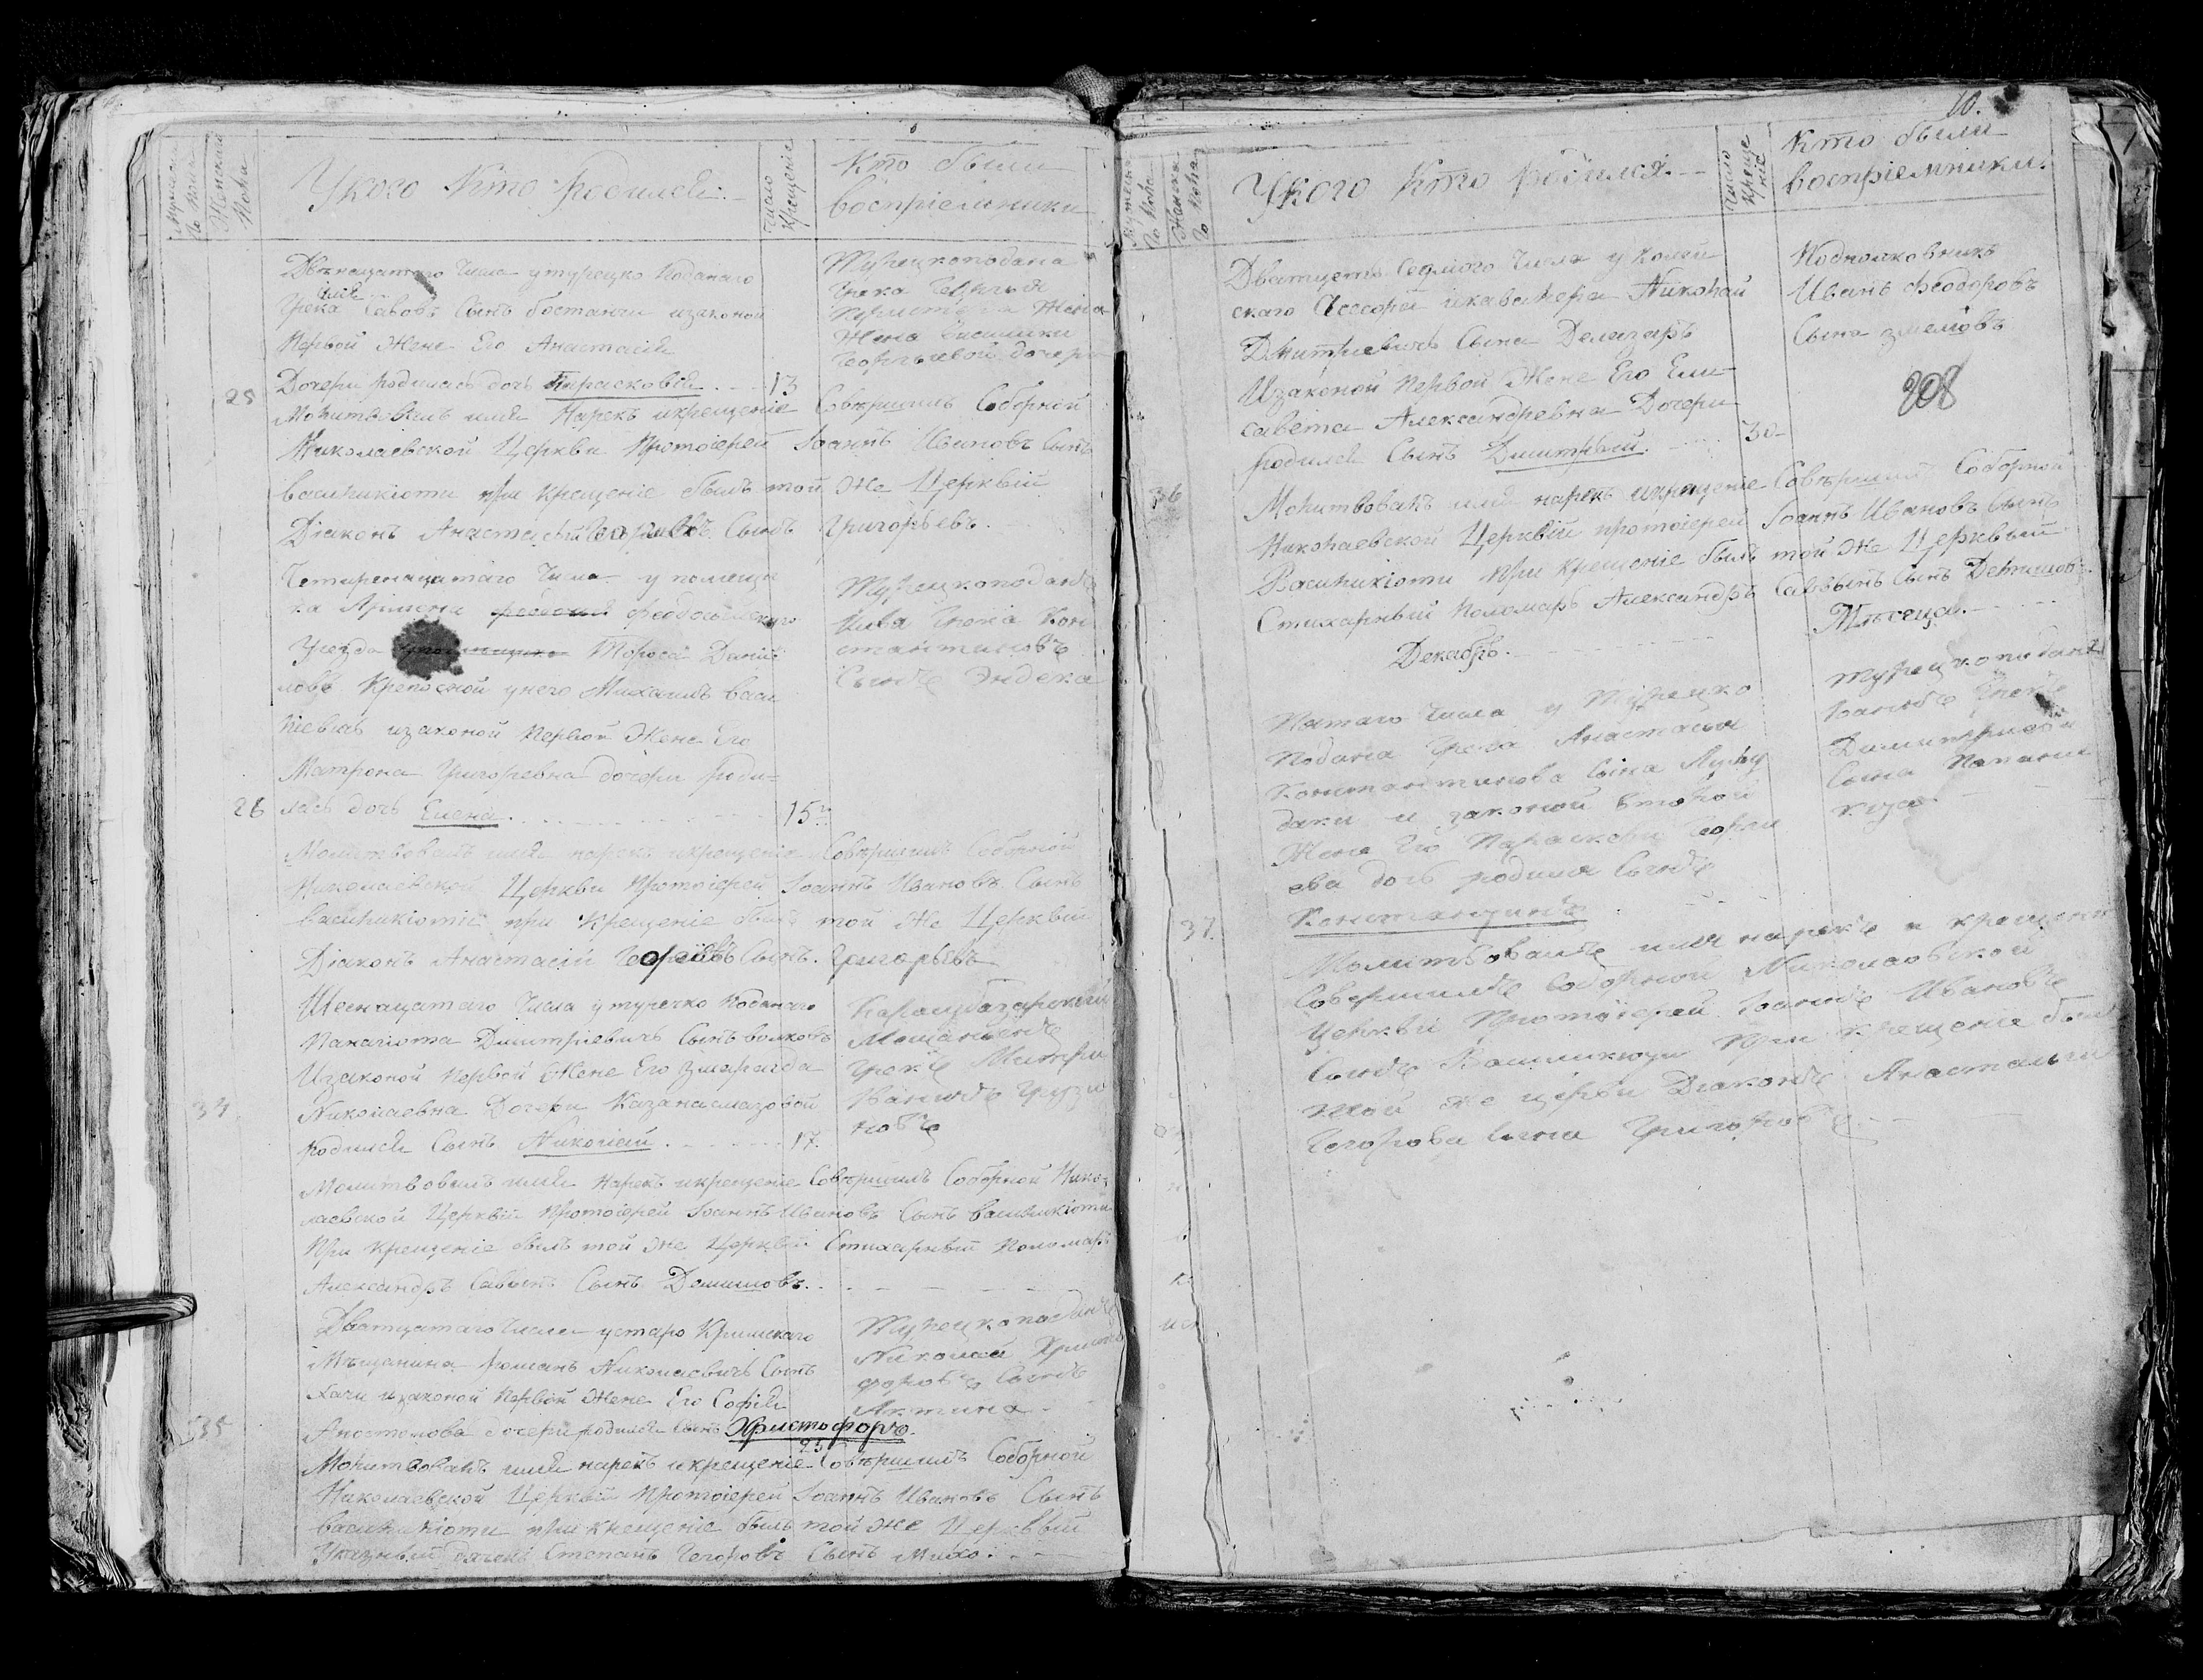 Мужеска
го пола
Женска
Пола
У кого Кто родился.
Число
Крещенiе
Кто были
воспрiемники
Двѣнацатаго Числа у турецко Подданаго
Грека Савовъ Сынъ бостанчи изаконой
Первой Жене Его Анастасiя
Дочери родилась дочь Парасковiя. 13
25
Турецкоподана
Грека Георгiя
Жена
Жена
Георгiевой дочери
Молитвовалъ имя Нарекъ икрещенiе Совѣршилъ Соборной
Николаевской Церкви Протоiерей Iоаннъ Ивановъ Сынъ
василикiоти при Крещенiе былъ той Же Церквiй
Дiаконъ Анастасiй Сынъ Григорьевъ.
Четиренацатаго Числа у помещи
ка Феодосийскаго
Уезда Тороса Данiи
ловъ Крепосной у него Михаилъ васи
лiевичъ изаконой Первой Жене Его
Матрона Григоревна дочери роди-
26 лась дочь Елена. 15
Турецкоподанъ
Грека Кон
стантиновъ
Сынъ Эндека
Молитвовалъ имя нарекъ икрещенiе Совѣршилъ Соборной
Николаевской Церкви Протоiерей Iоаннъ Ивановъ Сынъ
василикiотiй при Крещенiе былъ той Же Церквiй
Дiаконъ Анастасiй Георгiевъ Сынъ. Григорьевъ
Шеснацатаго Числа у турецко Поданаго
Панагiота Димитрiевичъ Сынъ волковъ
Изаконой Первой Жене Его Змарагда
Николаевна Дочери Казанасмазовой
34
Родился Сынъ Николай. 17.
Карасубазарскiй
Мещанинъ
Грекъ Митри
Ивановъ Грузи
новъ
Молитвовалъ имя Нарекъ икрещенiе Совѣршилъ Соборной Нико-
лаевской Церквiй Протоiерей Iоаннъ Ивановъ Сынъ василикiоти
При Крещенiе былъ той Же Церквiй Стихарный Поломарь
Александръ Савинъ Сынъ Демишовъ.
Дватцатаго Числа у старо Кримскаго
Мѣщанина Романъ Николаевичъ Сынъ
Хачи изаконой Первой Жене Его Софiя
35 Апостолова дочери родился сынъ Христофоръ.
25
Турецкоподанъ
Николай Христо
форовъ Сынъ
Актина
Молитвовалъ имя нарекъ икрещенiе Совѣршилъ Соборной
Николаевской Церквiй Протоiерей Iоаннъ Ивановъ Сынъ
василикiоти при Крещенiе былъ той Же Церквiй
Указный дячекъ Степанъ Георговъ Сынъ Михо.
10.
Мужеска
го Пола
Женска
го Пола
У кого Кто родился.
Число
Креще
нiе
Кто были
воспрiемники.
Дватцеть Седмого Числа у Колеж
скаго Асесора икавалера Николай
Дмитриевичъ Сына Делазаръ
Изаконой Первой Жене Его Ели-
савета Александревна Дочери
родился Сынъ Дмитрый. 30
Подполковникъ
Иванъ Феодоровъ
Сына
208
36
Молитвовалъ имя нарекъ икрещенiе Совѣршилъ Соборной
Николаевской Церквiй протоiерей Iоаннъ Ивановъ Сынъ
Василикiоти При Крещенiе былъ той Же Церквый
Стихарный Поломарь Александръ Саввынъ Сынъ Демишовъ.
Декабрь. Мѣсеца.
Пятаго Числа у Турецко
Подана Грека Анастасiя
Константинова Сына
даки и законой второй
Жене Его Параскеви Георги
ева дочь родился Сынъ
37. Константинъ
Турецкоподанъ
Iоаннъ Грекъ
Димитриовъ
Сына
Молитвовалъ имя нарекъ и крещенiе
Совершилъ Соборной Николаевской
Церкви Протоiерей Iоаннъ Ивановъ
Сынъ Василикiоти При крещенiе былъ
той же церкви Дiаконъ Анастасiй
Георгова Сына Григоровъ.